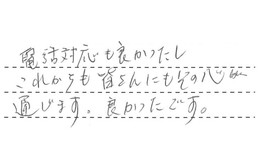 電話対応も良かったし
これからも皆さんにもその心が
通じます。良かったです。